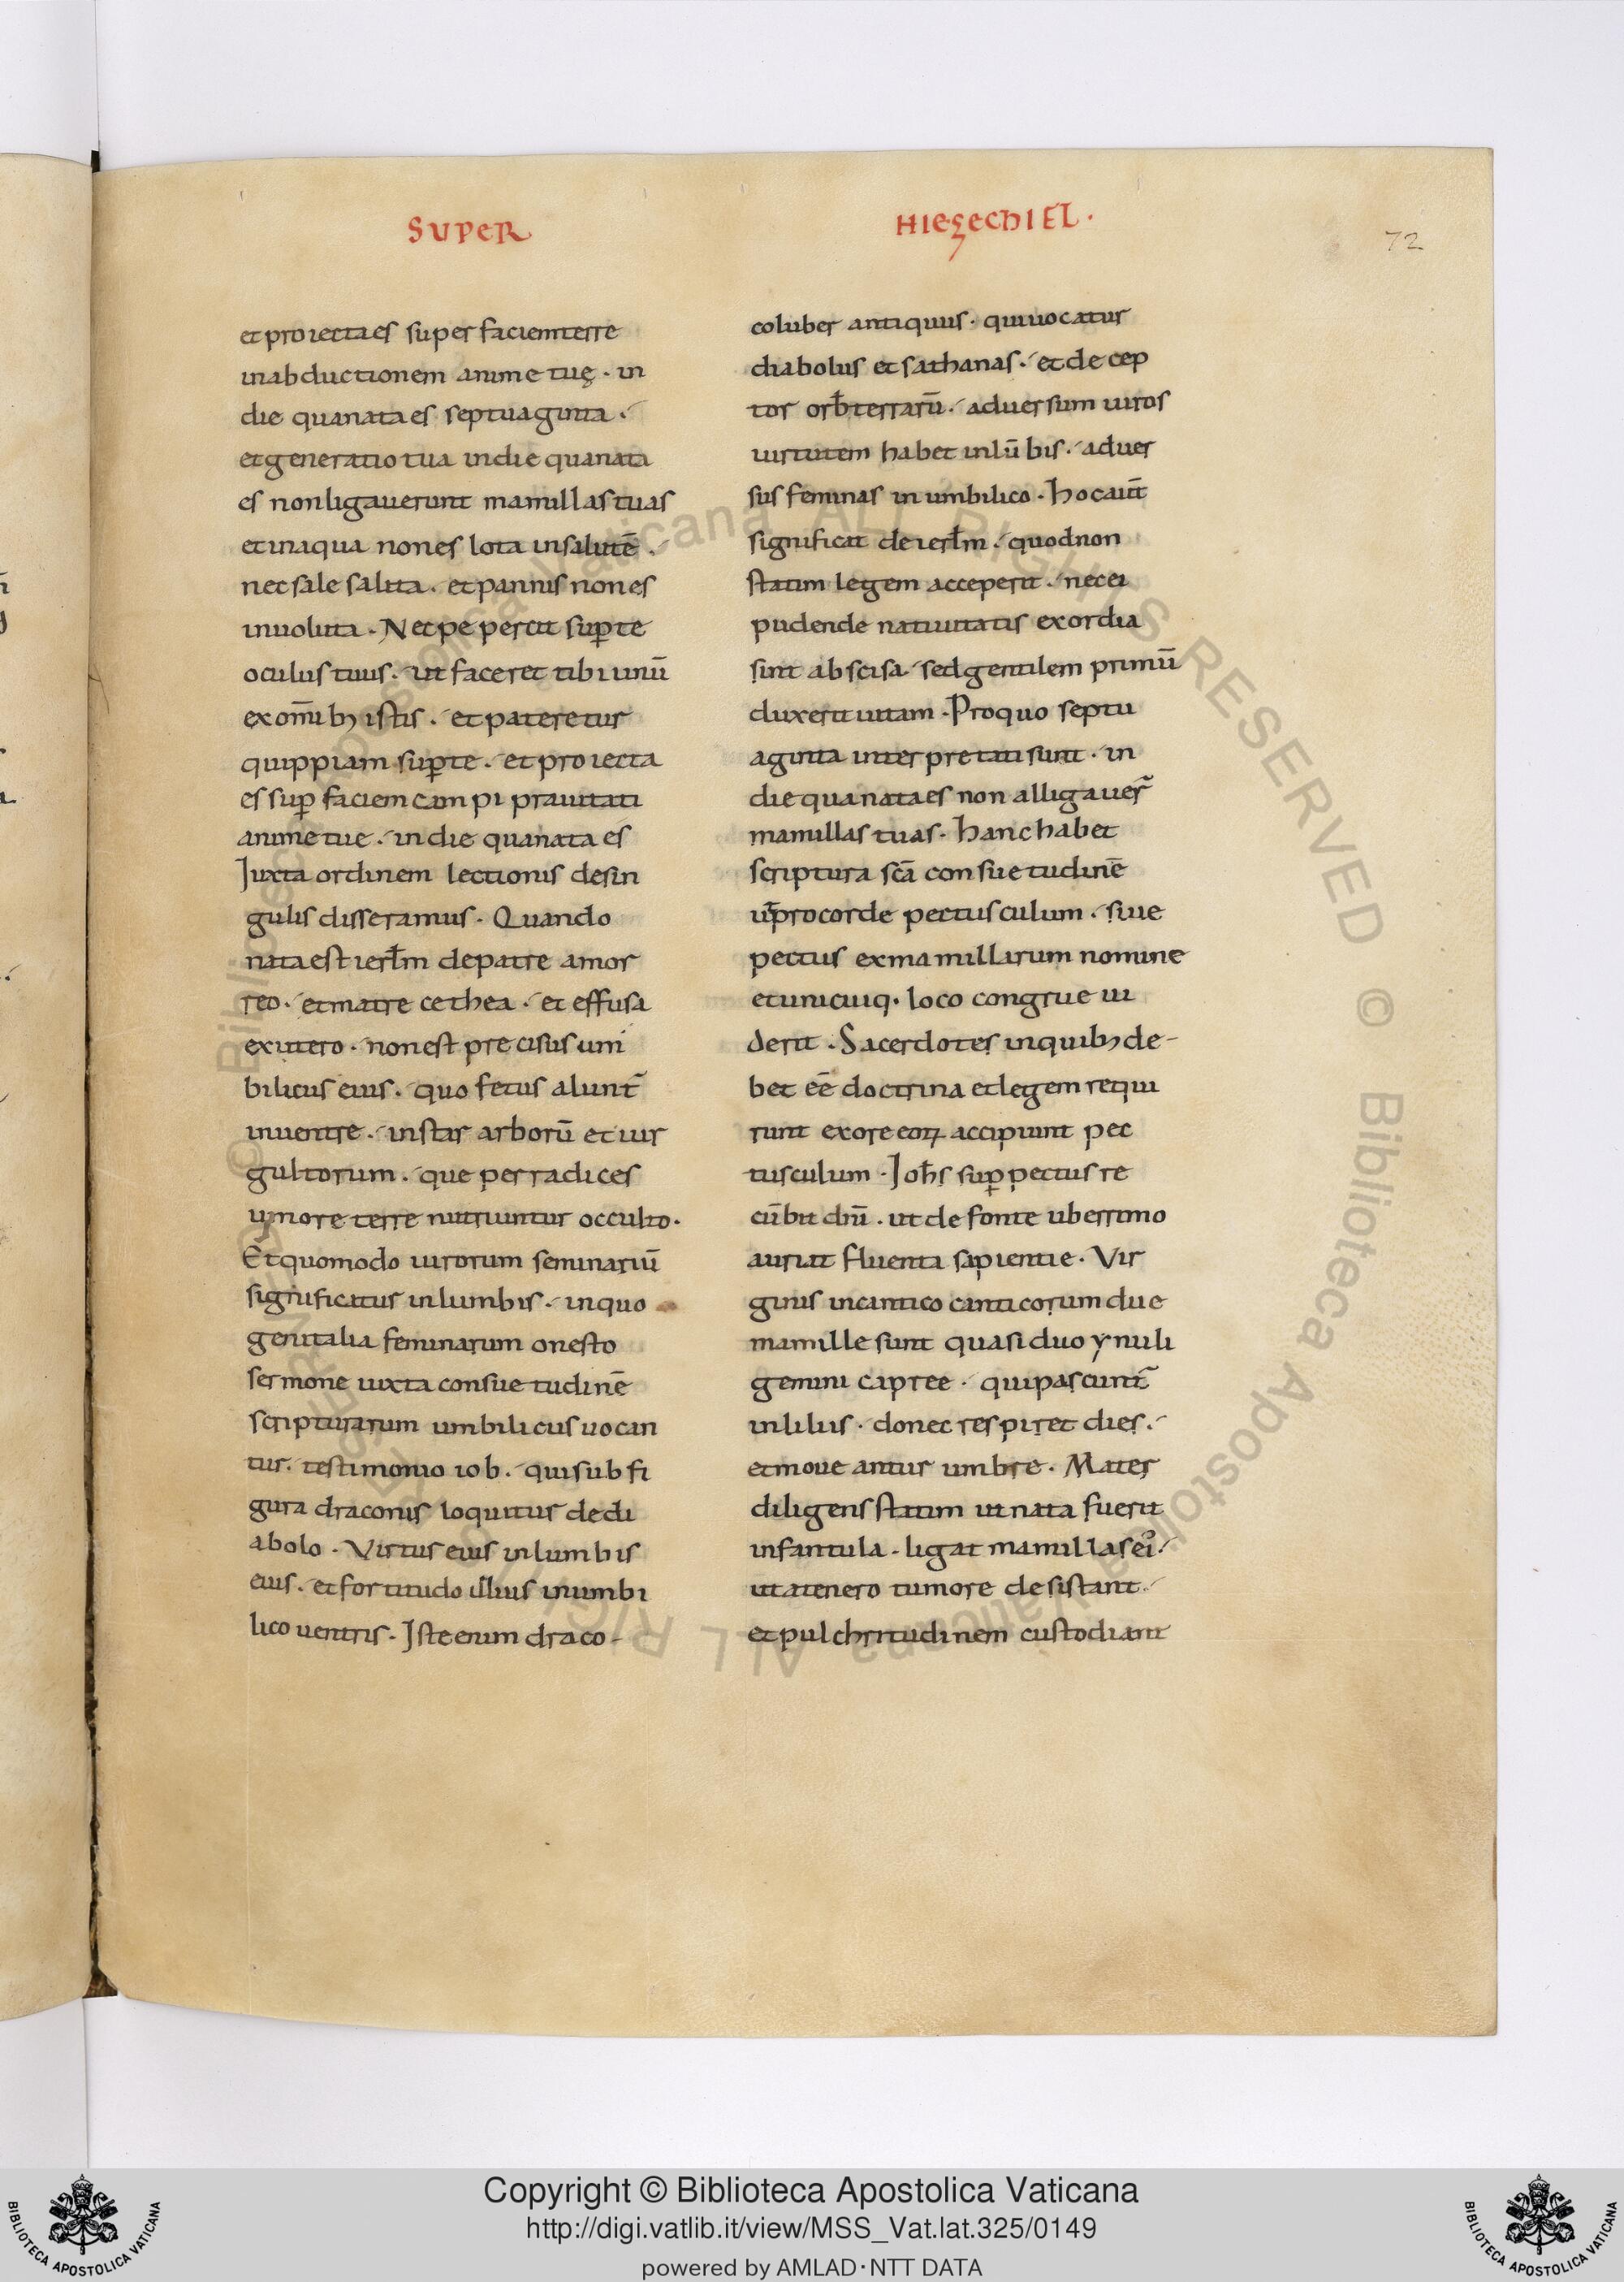 SUPER
et proiecta es super faciem terre
in abductionem anime tuę · in
die qua nata es septuaginta ·
et generatio tua in die qua nata
es non ligauerunt mamillas tuas
et in aqua non es lota in salutē ·
nec sale salita · et pannis non es
inuoluta · Nec pepercit sup̱ te
oculus tuus · ut faceret tibi unū
ex om̄ib; istis · et pateretur
quippiam sup̱ te · et proiecta
es sup̱ faciem campi prauitati
anime tue · in die qua nata es
Juxta ordinem lectionis de sin
gulis disseramus · Quando
nata est ierl̄m de patre amor
reo · et matre cethea · et effusa
ex utero · non est precisus um
bilicus eius · quo fetus alunt̄
in uentre · instar arborū et uir
gultorum · que per radices
umore terre nutriuntur occulto ·
Et quomodo uirorum seminariū
significatur in lumbis · in quo
genitalia feminarum onesto
sermone iuxta consuetudinē
scripturarum umbilicus uocan
tur · testimonio iob · qui sub fi
gura draconis loquitur de di
abolo · Virtus eius in lumbis
eius · et fortitudo illius in umbi
lico uentris · Iste enim draco -
HIEZECHIEL ·
72
coluber antiquus · qui uocatur
diabolus et sathanas · et decep
tor orb̄ terrarū · aduersum uiros
uirtutem habet in lūbis · aduer
sus feminas in umbilico · hoc aut̄
significat de ierl̄m · quod non
statim legem acceperit · nec ei
pudende natiuitatis exordia
sint abscisa · sed gentilem primū
duxerit uitam · Pro quo septu
aginta interpretati sunt · in
die qua nata es non alligauer̄
mamillas tuas · hanc habet
scriptura sc̄a consuetudinē
ut̄ pro corde pectusculum · siue
pectus ex mamillarum nomine
et unicuiq· loco congrue ui
derit · Sacerdotes in quib; de-
bet eē doctrina et legem requi
runt ex ore eoꝝ accipiunt pec
tusculum · Joh̄s sup̱ pectus re
cūbit dn̄i · ut de fonte uberrimo
auriat fluenta sapientie · Vir
ginis in cantico canticorum due
mamille sunt quasi duo ynuli
gemini capree · qui pascunt̄
in liliis · donec respiret dies ·
et moueantur umbre · Mater
diligens statim ut nata fuerit
infantula · ligat mamillas ei᾿ ·
ut a tenero tumore desistant ·
et pulchritudinem custodiant
Copyright © Biblioteca Apostolica Vaticana
http://digi.vatlib.it/view/MSS_Vat.lat.325/0149
powered by AMLAD·NTT DATA
BIBLIOTECA APOSTOLICA VATICANA
BIBLIOTECA APOSTOLICA VATICANA
© Biblioteca Apostolica Vaticana ALL RIGHTS RESERVED © Biblioteca Apostolica Vaticana ALL RIGHTS RESERVED